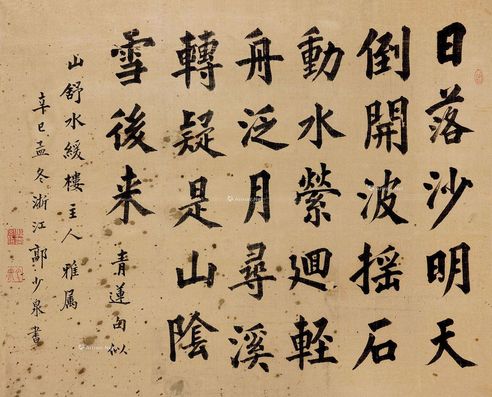 日落沙明天
倒開波搖石
動水縈迴輕
舟泛月尋溪
轉疑是山陰
雪後来
青蓮句似
山舒水緩樓主人雅属
辛巳孟冬浙江郭少泉書